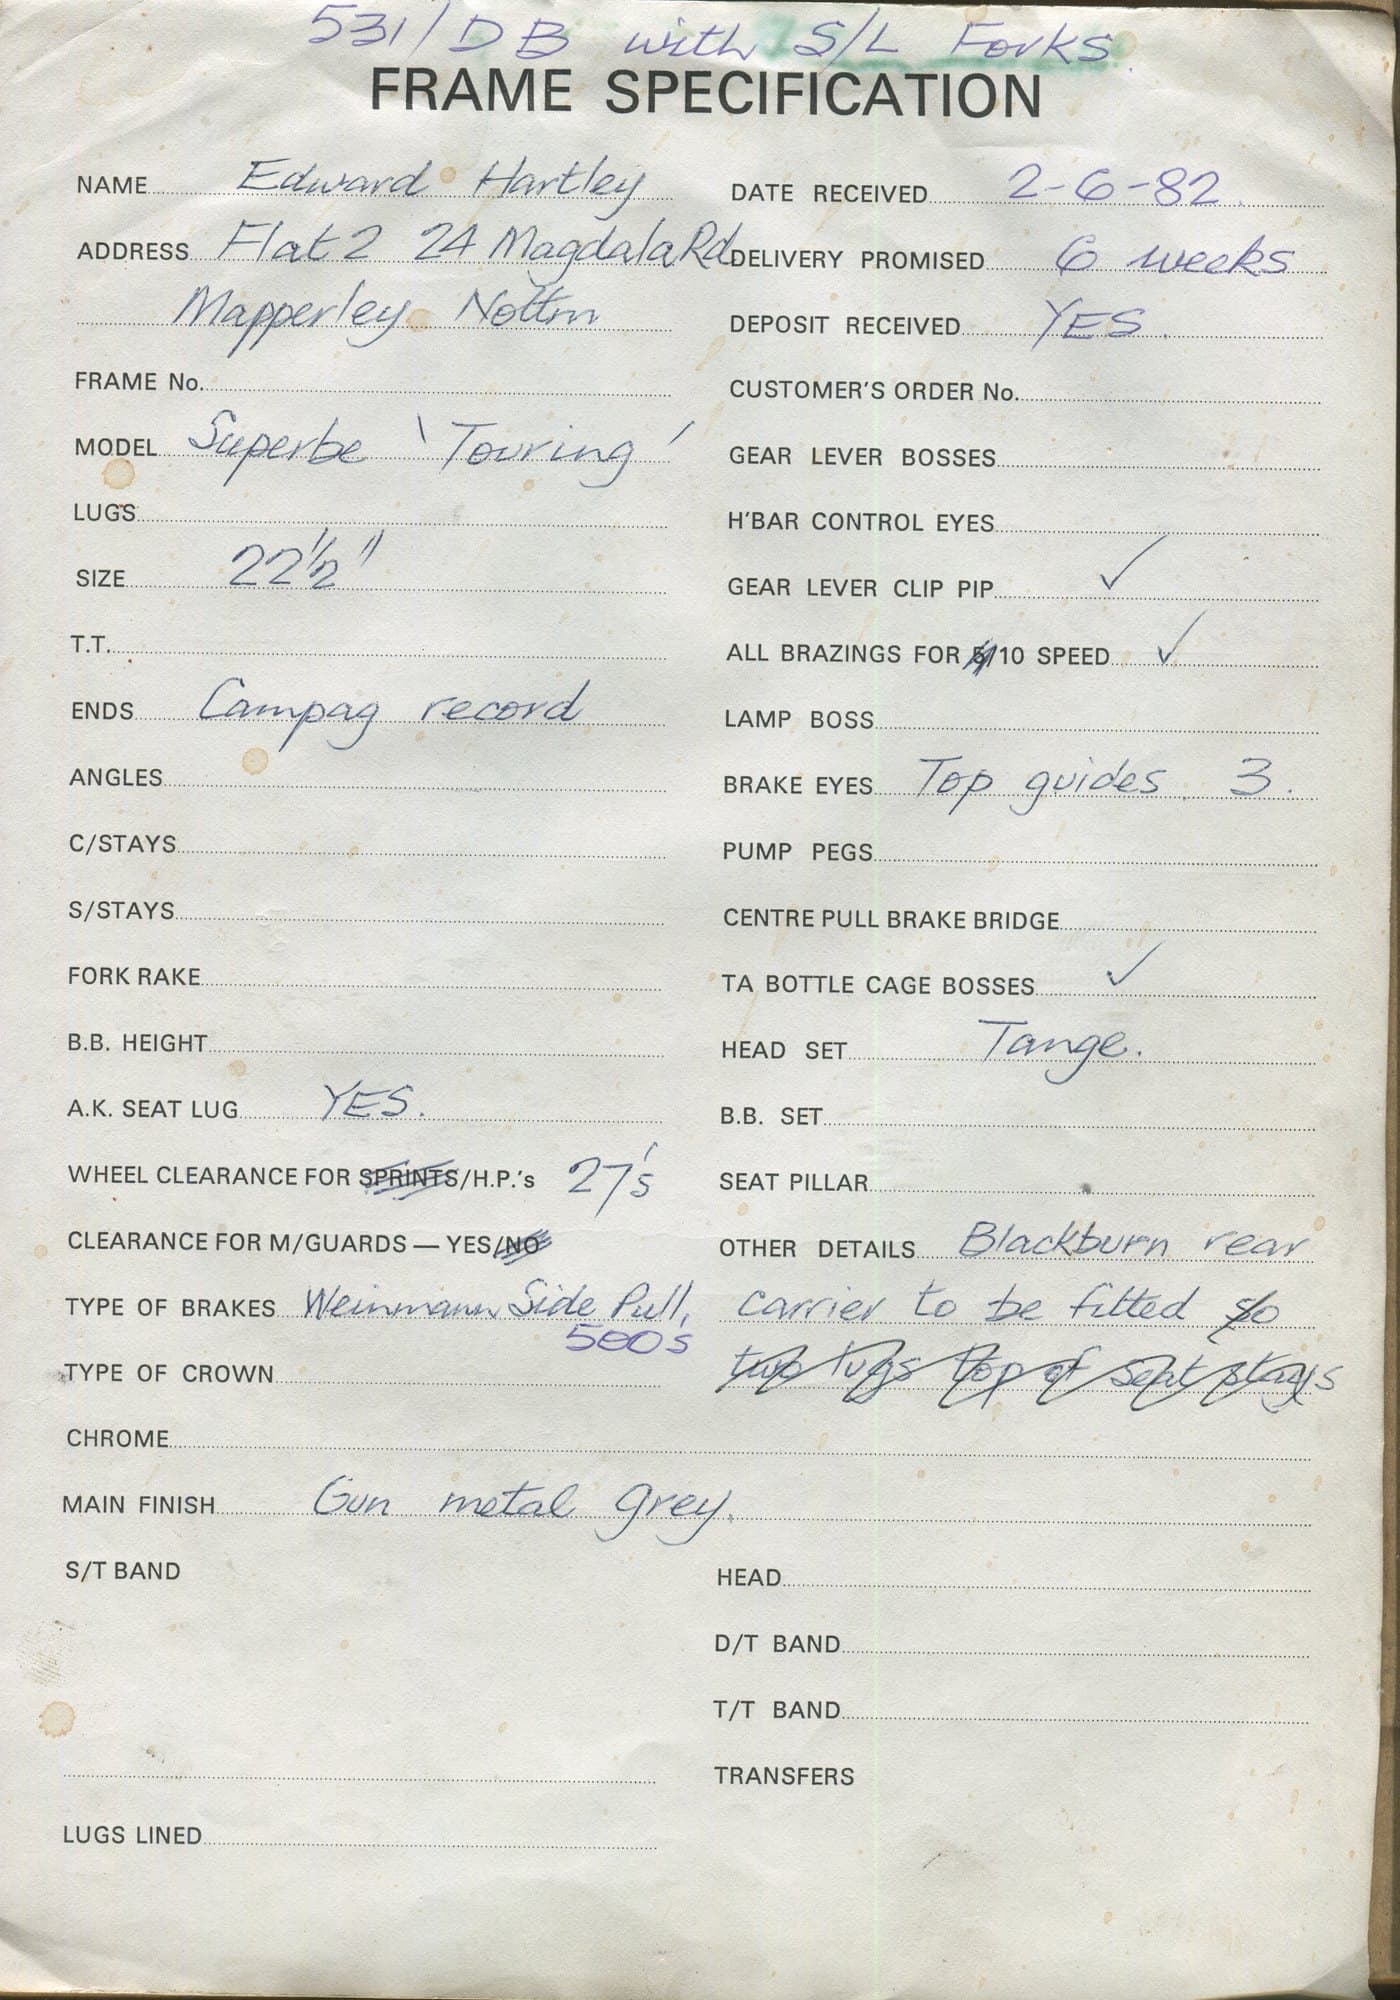 531/DB with S/L Forks.
FRAME SPECIFICATION
NAME Edward Hartley
ADDRESS Flat 2 24 Magdala Rd
Mapperley Nottm
FRAME No.
MODEL Superbe 'Touring'
LUGS
SIZE 22 1/2"
T.T.
ENDS Campag record
ANGLES
C/STAYS
S/STAYS
FORK RAKE
B.B. HEIGHT
A.K. SEAT LUG YES.
WHEEL CLEARANCE FOR SPRINTS/H.P.'s 27's
CLEARANCE FOR M/GUARDS — YES/NO
TYPE OF BRAKES Weinmann Side Pull,
500s
TYPE OF CROWN
DATE RECEIVED 2-6-82.
DELIVERY PROMISED 6 weeks
DEPOSIT RECEIVED YES.
CUSTOMER'S ORDER No.
GEAR LEVER BOSSES
H'BAR CONTROL EYES
GEAR LEVER CLIP PIP ✓
ALL BRAZINGS FOR 5/10 SPEED ✓
LAMP BOSS
BRAKE EYES Top guides 3.
PUMP PEGS
CENTRE PULL BRAKE BRIDGE
TA BOTTLE CAGE BOSSES ✓
HEAD SET Tange.
B.B. SET
SEAT PILLAR
OTHER DETAILS Blackburn rear
carrier to be fitted so
two lugs top of seat stays
CHROME
MAIN FINISH Gun metal grey.
S/T BAND
LUGS LINED
HEAD
D/T BAND
T/T BAND
TRANSFERS